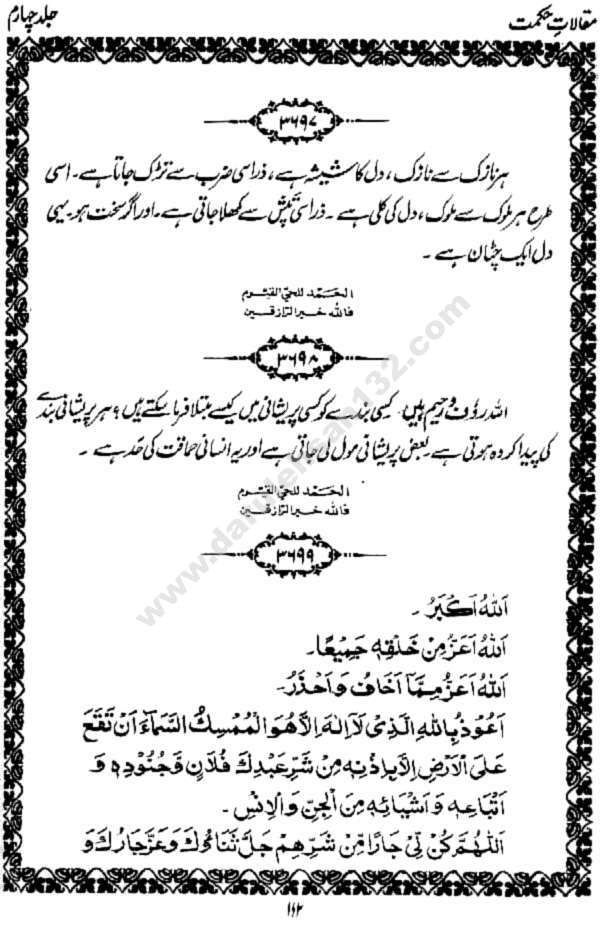 مقالاتِ حکمت
جلد چہارم
۳۶۹۷
ہر نازک سے نازک ، دل کا شیشہ ہے ، ذرا سی ضرب سے تڑک جاتا ہے۔ اسی
طرح ہر ملوک سے ملوک ، دل کی کلی ہے ۔ ذرا سی تپش سے کھلا جاتی ہے۔ اور اگر سخت ہو۔ یہی
دل ایک چٹان ہے ۔
الحَمد للحیّ القیّوم
فاللہ خیر الرّازقین
۳۶۹۸
اللہ رؤف و رحیم ہیں۔ کسی بندے کو کسی پریشانی میں کیسے مبتلا فرما سکتے ہیں؟ ہر پریشانی بندے
کی پیدا کردہ ہوتی ہے بعض پریشانی مول لی جاتی ہے اور یہ انسانی حماقت کی حَد ہے ۔
الحَمد للحیّ القیّوم
فاللہ خیر الرّازقین
۳۶۹۹
اَللهُ اَكْبَرُ ۔
اَللهُ اَعَزُّ مِنْ خَلْقِهٖ جَمِيْعًا۔
اَللهُ اَعَزُّ مِمَّا اَخَافُ وَاَحْذَرُ۔
اَعُوْذُ بِاللهِ الَّذِیْ لَا اِلٰهَ اِلَّا هُوَ الْمُمْسِكُ السَّمَآءَ اَنْ تَقَعَ
عَلَى الْاَرْضِ اِلَّا بِاِذْنِهٖ مِنْ شَرِّ عَبْدِكَ فُلَانٍ وَّجُنُوْدِهٖ وَ
اَتْبَاعِهٖ وَاَشْيَاعِهٖ مِنَ الْجِنِّ وَالْاِنْسِ ۔
اَللّٰهُمَّ كُنْ لِّیْ جَارًا مِّنْ شَرِّهِمْ جَلَّ ثَنَاؤُكَ وَعَزَّ جَارُكَ وَ
۱۱۲
www.darulehsan132.com